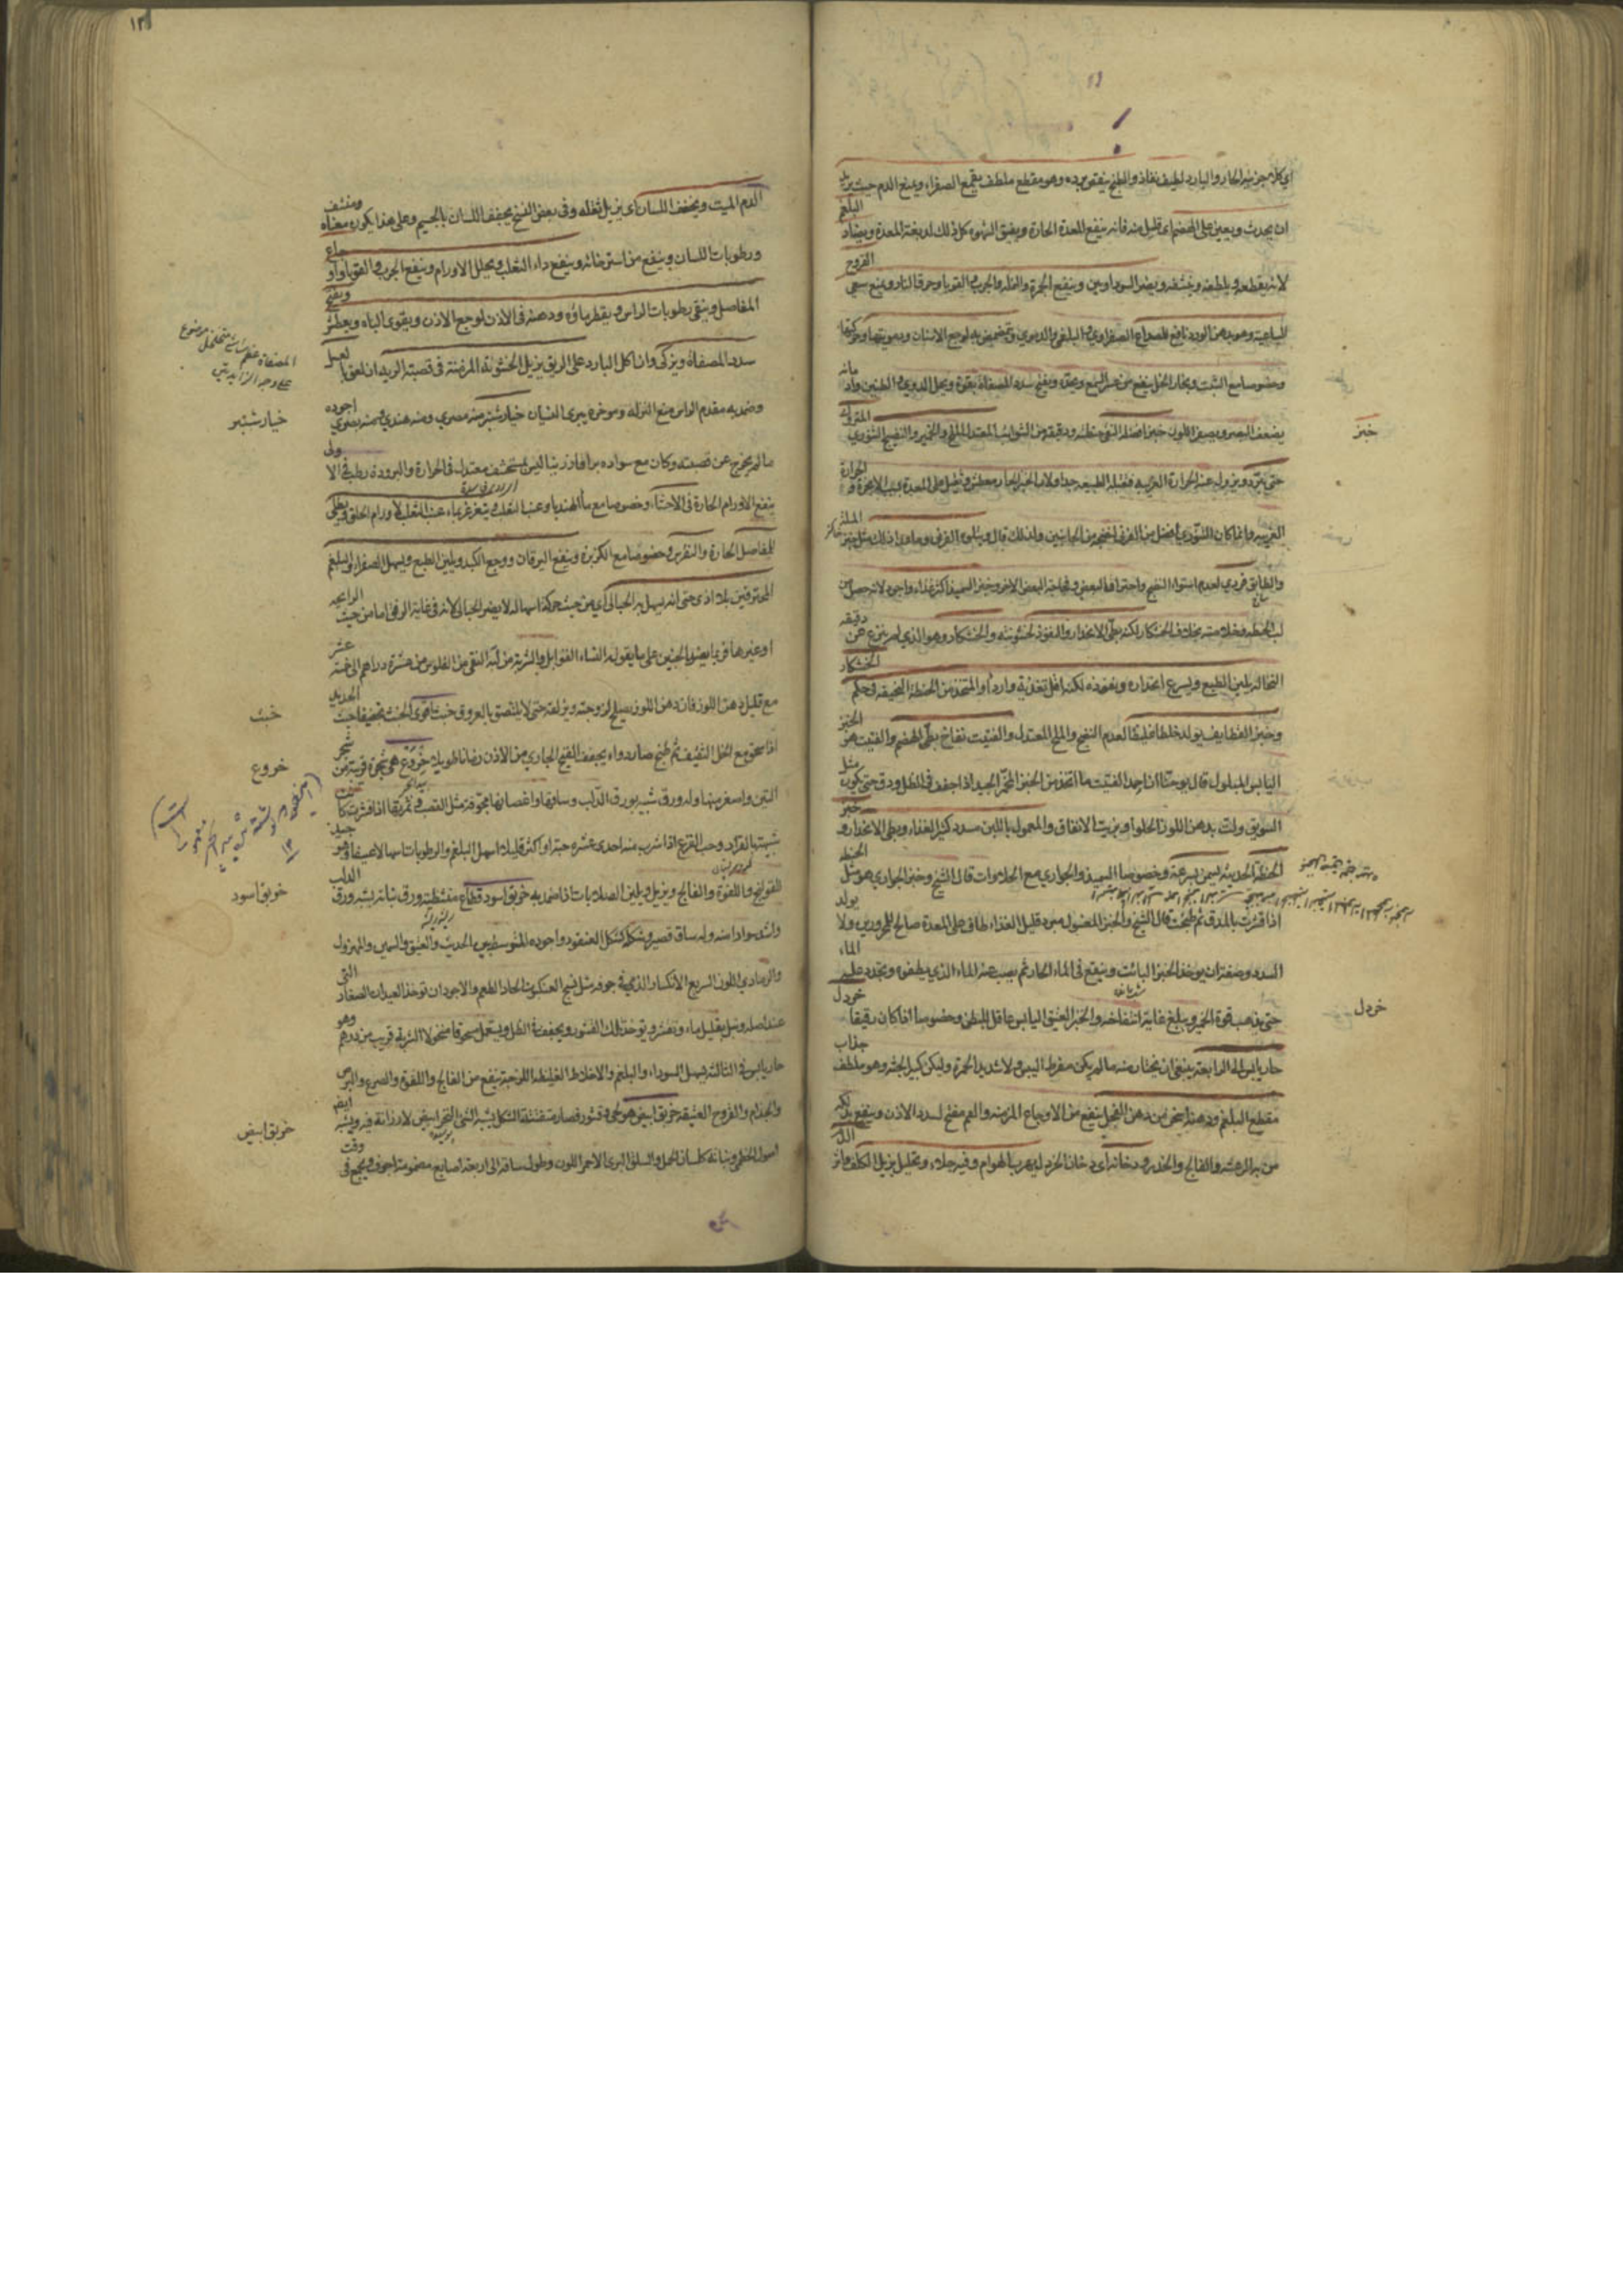 اي كلا جزئيه الحار والبارد لطيف نفاذ والطبخ ينقص برده وهو مقطع ملطف يقمع الصفراء ويمنع الدم حيث يريد
ان يحدث ويعين على الهضم اي قليل منه فانه ينفع المعدة الحارة ويفيق الشهوة كل ذلك لدبغه المعدة ويضاد البلغم
لانه يقطعه ويلطفه وينشفه ويضر السوداويين وينفع الجمرة والنملة والجرب والقوبا وحرق النار ويمنع سعي القروح
الساعية وهو بدهن الورد نافع للصداع الصفراوي والبلغمي والدموي ويتمضمض به لوجع الاسنان ودمويتها وحركتها
وخصوصا مع الشبت وبخار الخل ينفع من عسر السمع ويحده ويفتح سدد المصفاة بقوة ويحل الدوي والطنين وادمانه
يضعف البصر ويصفر اللون خبز افضله النقي حنطته ودقيقه من الشوائب المعتدل الملح والخمير والنضيج التنوري المتروك
حتى يبرد ويزول عنه الحرارة الغريبة فتقبله الطبيعة جدا ولان الخبز الحار معطش وثقيل على المعدة بسبب الابخرة والحرارة
الغريبة وانما كان التنوري افضل من الفرني لنضجه من الجانبين ولذلك قال ويتلوه الفرني وما وراء ذلك مثل خبز الملة
والطابق فردي لعدم استواء النضج واحتراق البعض وفجاجة البعض الاخر وخبز السميد اكثر غذاء واجود لانه حصل من
لب الحنطة
النخالة يلين الطبيع ويسرع انحداره ونفوذه لكنه اقل تغذية واردأ والمتخذ من الحنطة السخيفة في حكم الخشكار
وخبز القطايف يولد خلطا غليظا لعدم النضج والملح المعتدل والفتيت نفاخ بطئ الهضم والفتيت هو الخبز
اليابس المبلول قال يوحنا ان احمد الفتيت ما اتخذ من الخبز المخمر الجيد اذا جفف في الظل ودق حتى يكون مثل
السويق ولت بدهن اللوز الحلو او بزيت الانفاق والمعمول باللبن مسدد كثير الغذاء وبطئ الانحدار وخبز
الحنطة الحديثة يسمن بسرعة وخصوصا السميد والحواري مع الحلاوات قال الشيخ وخبز الحواري هو مثل الحنطة
اذا قشرت بالمدق ثم طحنت قال الشيخ والخبز المغسول مبرد قليل الغذاء طاف على المعدة صالح للمحرورين ولا يولد
السدد وصفته ان يوخذ الخبز البائت وينقع في الماء الحار ثم يصب عنه الماء الذي يطفو ويجدد عليه الماء
حتى يذهب قوة الخمير ويبلغ غاية انتفاخه والخبز العتيق اليابس عاقل للبطن وخصوصا اذا كان رقيقا خردل
حار يابس الى الرابعة ينبغي ان يختار منه ما لم يكن مفرط اليبس ولا شديد الحمرة وليكن كبير الجثة وهو ملطف جذاب
مقطع البلغم ودهنه اسخن من دهن الفجل ينفع من الاوجاع المزمنة والصمم مفتح لسدد الاذن وينفع
من به الرعشة والفالج والخدر ودخانه اي دخان الخردل يهرب الهوام وفيه جلاء وتحليل يزيل الكلف واثر
خبز
خردل
الدم الميت ويخفف اللسان اي يزيل ثقله وفي بعض النسخ يجفف اللسان بالجيم وعلى هذا يكون معناه ومنشف
ورطوبات اللسان وينفع من استرخائه وينفع داء الثعلب ويحلل الاورام وينفع الجرب والقوبا واوجاع
المفاصل وينقي رطوبات الراس ويقطر ماؤه ودهنه في الاذن لوجع الاذن ويقوي الباه ويعطش ويفتح
سدد المصفاة ويزكي وان اكل البارد على الريق يزيل الخشونة المزمنة في قصبة الرية ان لعق بالعسل
وضمد به مقدم الراس منع النزلة وموخره يبرى النسيان خيار شنبر منه مصري ومنه هندي ومنه بصري اجوده
ما لم يخرج عن قصبته وكان مع سواده براقا رزينا ليس بمتحشف معتدل في الحرارة والبرودة رطب في الاولى
ينفع الاورام الحارة في الاحشاء وخصوصا مع ماء الهندبا وعنب الثعلب ويتغرغر بماء عنب الثعلب لاورام الحلق ويطلى
للمفاصل الحارة والنقرس وخصوصا مع الكزبرة وينفع اليرقان ووجع الكبد ويلين الطبع ويسهل الصفراء والبلغم
المحترقين بلا اذى حتى انه يسهل به الحبالى اي من حيث حركة اسهاله لا يضر الحبالى لانه في غاية الرفق اما من حيث الرايحة
او غيرها فربما يضر بالجنين على ما يقوله النساء القوابل والشربة من لبه النقي من الفلوس من عشرة دراهم الى خمسة عشر
مع قليل دهن اللوز فان دهن اللوز يصلح لزوجته ويزلقه حتى لا يلتصق بالعروق خبث اقوى الخبث تجفيفا خبث الحديد
اذا سحق مع الخل الثقيف ثم طبخ صار دواء يجفف القيح الجاري من الاذن زمانا طويلا خروع هي شجرة قريبة من شجر
التين واصغر منها وله ورق شبيه بورق الدلب وساقها واغصانها مجوفة مثل القصب
شبيهة بالقراد وحب القرع اذا شرب منه احدى عشرة حبة او اكثر قليلا اسهل البلغم والرطوبات
القولنج واللقوة والفالج ويزيل ويلين الصلابات اذا ضمد به خربق اسود قطاع متشظية ورق نباته يشبه ورق الدلب
واشد سوادا منه وله ساق قصير وشكله كشكل العنقود واجوده المتوسط بين الحديث والعتيق والسمين والمهزول
والرمادي اللون السريع الانكسار الذي في جوفه مثل نسج العنكبوت الحاد الطعم والاجود ان توخذ العيدان الصغار التي
عند اصله وتبل بقليل ماء وتقشر ويوخذ تلك القشور ويجفف في الظل ويستعمل مسحوقا منخولا الشربة قريب من درهم وهو
حار يابس في الثالثة يسهل السوداء والبلغم والاخلاط الغليظة اللزجة ينفع من الفالج واللقوة والصرع والبرص
والجذام والقروح العتيقة خربق ابيض
اصول الخطمي ونباته كلسان الحمل والسلق البري الاحمر اللون وطول ساقه الى اربعة اصابع مضمومة اجوف ويجمع في وقت
المصفاة عظم مشاشي متخلخل موضوع
على وجه الزايدتين
خيار شنبر
خبث
خروع
خربق اسود
خربق ابيض